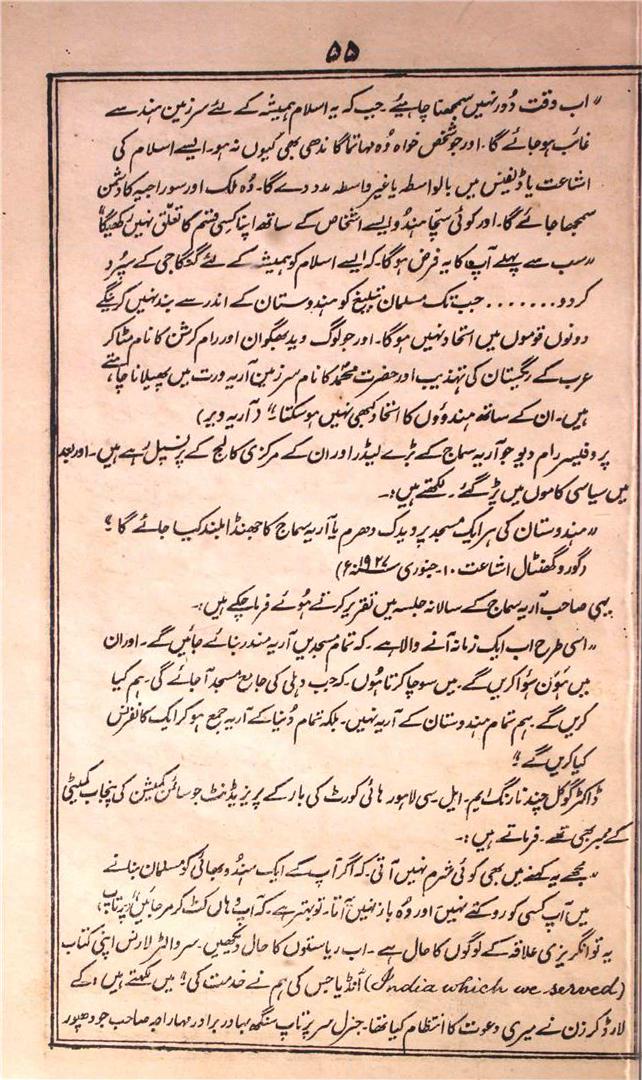 ۵۵
"اب وقت دُور نہیں سمجھنا چاہئے۔ جب کہ یہ اسلام ہمیشہ کے لئے سرزمین ہند سے
غائب ہو جائے گا۔ اور جو شخص خواہ وُہ مہاتما گاندھی بھی کیوں نہ ہو۔ ایسے اسلام کی
اشاعت یا ڈیفنس میں بالواسطہ یا غیر واسطہ مدد دے گا۔ وُہ ملک اور سوراجیہ کا دشمن
سمجھا جائے گا۔ اور کوئی سچّا ہندو ایسے اشخاص کے ساتھ اپنا کسی قسم کا تعلّق نہیں رکھیگا"
"سب سے پہلے آپ کا یہ فرض ہوگا۔ کہ ایسے اسلام کو ہمیشہ کے لئے گنگا جی کے سپُرد
کر دو۔ . . . . . . جب تک مسلمان تبلیغ کو ہندوستان کے اندر سے بند نہیں کرینگے
دونوں قوموں میں اتحاد نہیں ہوگا۔ اور جو لوگ وید بھگوان اور رام کرشن کا نام مٹا کر
عرب کے ریگستان کی تہذیب اور حضرت محمدؐ کا نام سرزمین آریہ ورت میں پھیلانا چاہتے
ہیں۔ ان کے ساتھ ہندوؤں کا اتحاد کبھی نہیں ہو سکتا۔" (آریہ ویر)
پروفیسر رام دیو جو آریہ سماج کے بڑے لیڈر اور ان کے مرکزی کالج کے پرنسپل رہے ہیں۔ اور بعد
میں سیاسی کاموں میں پڑ گئے۔ لکھتے ہیں:۔
"ہندوستان کی ہر ایک مسجد پر ویدک دھرم یا آریہ سماج کا جھنڈا بلند کیا جائے گا"
(گورو گھنٹال اشاعت ۱۰۔ جنوری ۱۹۲۷ء)
یہی صاحب آریہ سماج کے سالانہ جلسہ میں تقریر کرتے ہوئے فرما چکے ہیں:۔
"اسی طرح اب ایک زمانہ آنے والا ہے۔ کہ تمام مسجدیں آریہ مندر بنائے جائیں گے۔ اور ان
میں ہَوَن ہؤا کریں گے۔ میں سوچا کرتا ہُوں۔ کہ جب دہلی کی جامع مسجد آ جائے گی۔ ہم کیا
کریں گے۔ ہم تمام ہندوستان کے آریہ نہیں۔ بلکہ تمام دُنیا کے آریہ جمع ہو کر ایک کانفرنس
کیا کریں گے"
ڈاکٹر گوکل چند نارنگ ایم۔ ایل۔ سی لاہور ہائی کورٹ کی بار کے پریذیڈنٹ جو سائمن کمیشن کی پنجاب کمیٹی
کے ممبر بھی تھے۔ فرماتے ہیں:۔
"مجھے یہ کہنے میں بھی کوئی شرم نہیں آتی۔ کہ اگر آپ کے ایک ہندو بھائی کو مسلمان بنانے
میں آپ کسی کو روکتے ہیں اور وُہ باز نہیں آتا۔ تو بہتر ہے۔ کہ آپ وہاں کٹ کر مر جائیں" (پرتاپ)
یہ تو انگریزی علاقہ کے لوگوں کا حال ہے۔ اب ریاستوں کا حال دیکھیں۔ سر والٹر لارنس اپنی کتاب
(India which we served) انڈیا جس کی ہم نے خدمت کی" میں لکھتے ہیں:۔ کے
لارڈ کرزن نے میری دعوت کا انتظام کیا تھا۔ جنرل سر پرتاپ سنگھ بہادر برادر مہاراجہ صاحب جودھپور